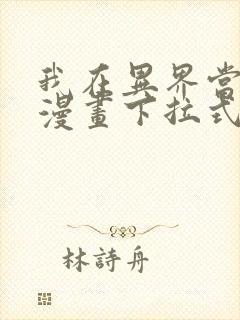 我在異界當
漫畫下拉式
林詩舟